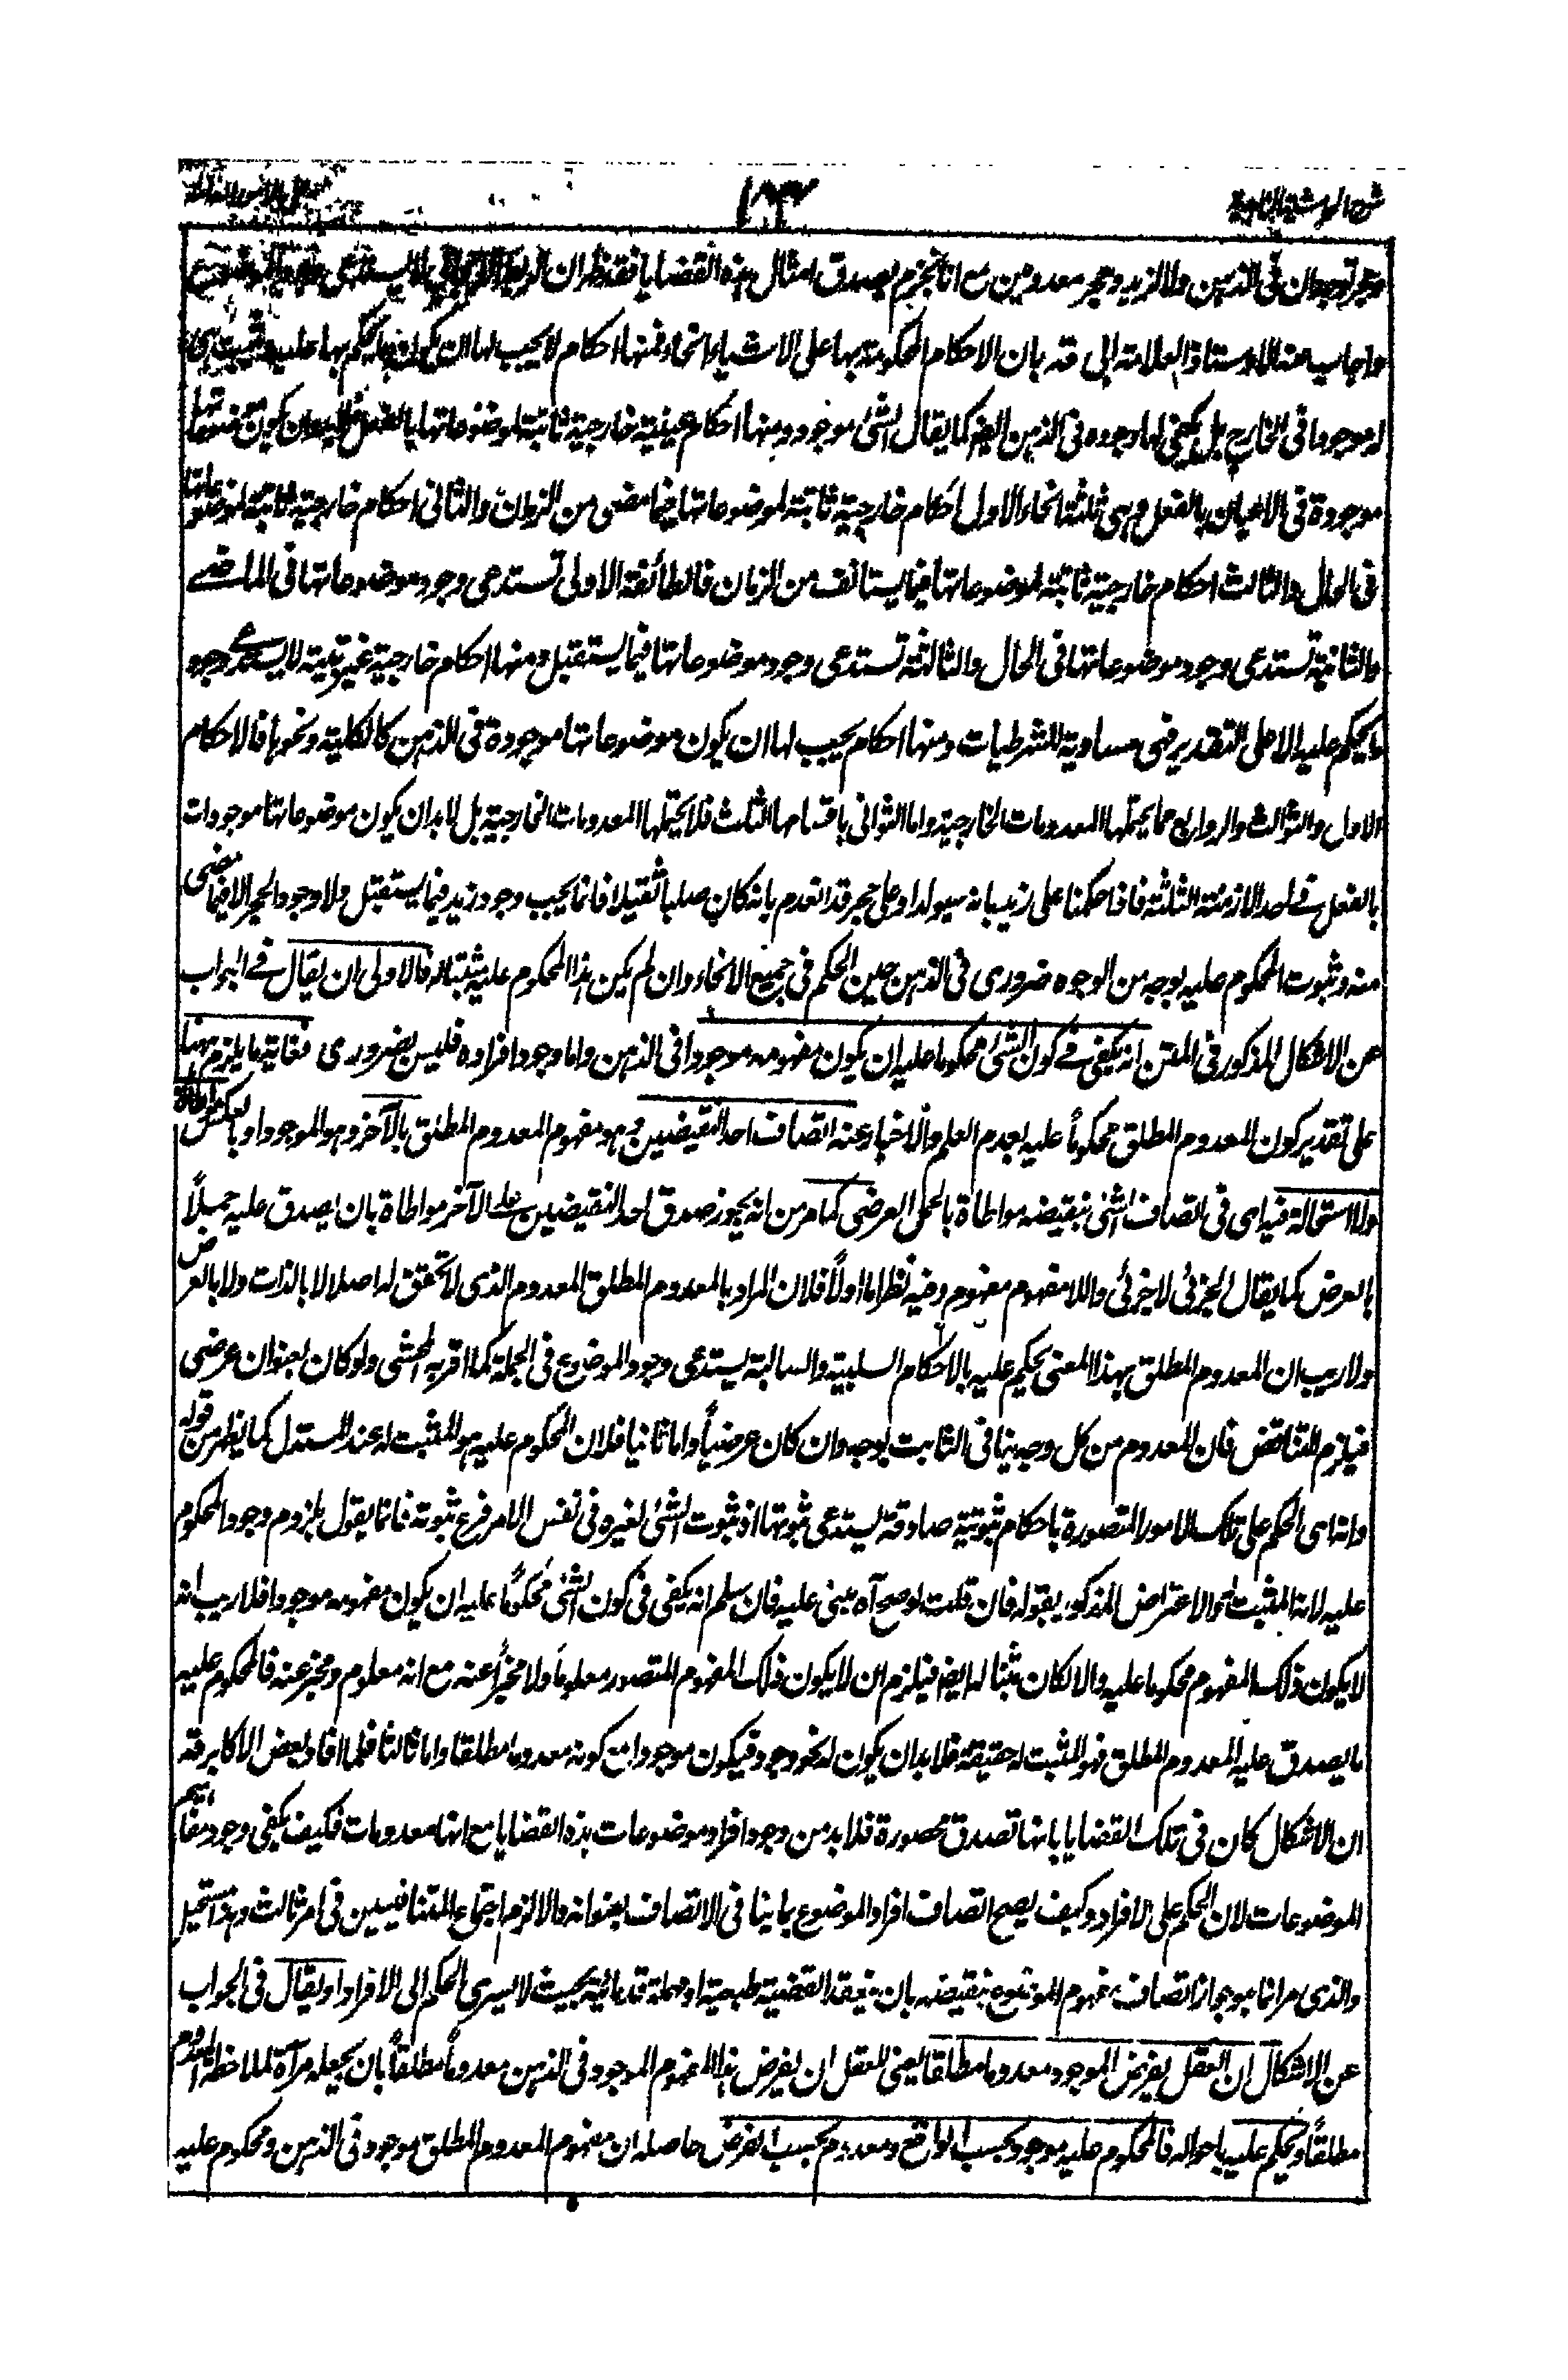 ١٨٣
وعمرو توجدان في الذهن ولا لزيد وعمرو معدومين مع انا نجزم بصدق امثال هذه القضايا فقد ظهر ان الربط الايجابي لا يستدعي
واجاب عنه الاوستاذ العلامة ابي قده بان الاحكام المحكومة بها على الاشياء انحاء فمنها احكام لا يجب لها ان يكون ما يحكم بها عليه
له موجودا في الخارج بل يكفي لها وجوده في الذهن ايضا كما يقال الشئ موجود ومنها احكام عينية خارجية ثابتة لموضوعاتها بالفعل ان يكون موضوعاتها
موجودة في الاعيان بالفعل وهي ثلثة انحاء الاول احكام خارجية ثابتة لموضوعاتها فيما مضى من الزمان والثاني احكام خارجية ثابتة لموضوعاتها
في الحال والثالث احكام خارجية ثابتة لموضوعاتها فيما يستانف من الزمان فالطائفة الاولى تستدعي وجود موضوعاتها في الماضے
والثانية تستدعي وجود موضوعاتها في الحال والثالثة تستدعي وجود موضوعاتها فيما يستقبل ومنها احكام خارجية غير بتية لا يستدعي وجود
ما يحكم عليه الا على التقدير فهي مساوية للشرطيات ومنها احكام يجب لها ان يكون موضوعاتها موجودة في الذهن كالكلية ونحوها فالاحكام
الاول والثوالث والروابع مما يحتملها المعدومات الخارجية واما الثواني باقسامها الثلث فلا يحتملها المعدومات الخارجية بل لا بد ان يكون موضوعاتها موجودات
بالفعل في احد الازمنة الثلثة فاذا حكمنا على زيد بانه سيولد او على حجر قد انعدم بانه كان صلبا ثقيلا فانما يجب وجود زيد فيما يستقبل ولا وجود الحجر الا فيما مضى
منه وثبوت المحكوم عليه بوجه من الوجوه ضروري في الذهن حين الحكم في جميع الانحاء وان لم يكن هذا المحكوم عليه مثبتا له فالاولى ان يقال في الجواب
عن الاشكال المذكور في المتن انه يكفي في كون الشئ محكوما عليه ان يكون مفهومه موجودا في الذهن واما وجود افراده فليس بضروري فغاية ما يلزم ههنا
على تقدير كون المعدوم المطلق محكوماً عليه بعدم العلم والاخبار عنه اتصاف احد النقيضين وهو مفهوم المعدوم المطلق بالآخر وهو الموجود او بالعكس مواطاة
ولا استحالة فيه اي في اتصاف الشئ بنقيضه مواطاة بالحمل العرضي كما مر من انه يجوز صدق احد النقيضين على الآخر مواطاة بان يصدق عليه حملاً
بالعرض كما يقال الجزئي لا جزئي واللا مفهوم مفهوم وفيه نظر اما اولاً فلان المراد بالمعدوم المطلق المعدوم الذي لا تحقق له اصلا لا بالذات ولا بالعرض
ولا ريب ان المعدوم المطلق بهذا المعنى يحكم عليه بالاحكام السلبية والسالبة يستدعي وجود الموضوع في الجملة كما اقر به المحشي ولو كان بعنوان عرضي
فيلزم التناقض فان المعدوم من كل وجه ينافي الثابت بوجه وان كان عرضياً واما ثانيا فلان المحكوم عليه هو المثبت له عند المستدل كما يظهر من قوله
وانه اي الحكم على تلك الامور المتصورة باحكام ثبوتية صادقة يستدعي ثبوتها اذ ثبوت الشئ لغيره في نفس الامر فرع ثبوته فانما يقول بلزوم وجود المحكوم
عليه لانه المثبت له والاعتراض المذكور بقوله فان قلت لو صح آه مبني عليه فان سلم انه يكفي في كون الشئ محكوماً عليه ان يكون مفهومه موجودا فلا ريب انه
لا يكون ذلك المفهوم محكوما عليه والا لكان مثبتا له ايضا فيلزم ان لا يكون ذلك المفهوم المتصور معلوماً ولا مخبراً عنه مع انه معلوم ومخبر عنه فالمحكوم عليه
ما يصدق عليه المعدوم المطلق فهو المثبت له حقيقة فلا بد ان يكون له نحو وجود فيكون موجودا مع كونه معدوما مطلقا واما ثالثا فلما افاد بعض الاكابر قده
ان الاشكال كان في تلك القضايا بانها تصدق محصورة فلا بد من وجود افراد موضوعات هذه القضايا مع انها معدومات فكيف يكفي وجود مفاهيم
الموضوعات لان الحكم على الافراد وكيف يصح اتصاف افراد الموضوع بما ينافي الاتصاف بعنوانه والا لزم اجتماع المتنافيين في امر ثالث وهذا مستحيل
والذي مر انما هو جواز اتصاف مفهوم الموضوع بنقيضه بان تنعقد القضية طبعية او مهملة قدمائية بحيث لا يسري الحكم الى الافراد او يقال في الجواب
عن الاشكال ان العقل يفرض الموجود معدوما مطلقا يعني للعقل ان يفرض هذا المفهوم الموجود في الذهن معدوماً مطلقاً بان يجعله مرآة لملاحظة المعدوم
مطلقاً ويحكم عليه باحواله فالمحكوم عليه موجود بحسب الواقع ومعدوم بحسب الفرض حاصله ان مفهوم المعدوم المطلق موجود في الذهن ومحكوم عليه